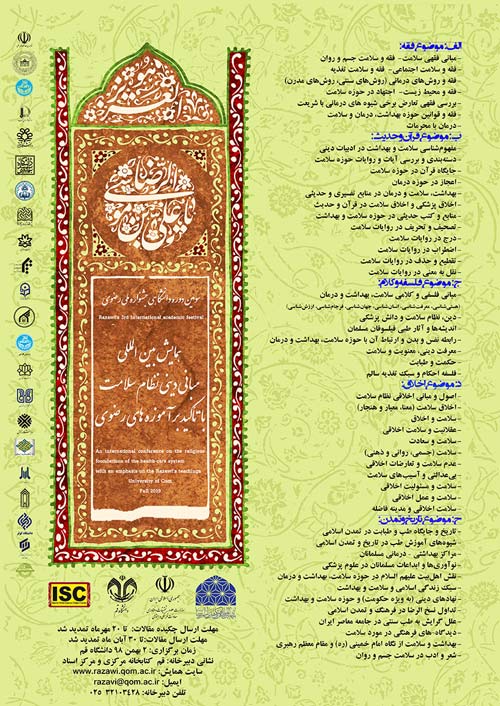 الف: موضوع فقه:
-مبانی فقهی سلامت- فقه و سلامت جسم و روان
-فقه و سلامت اجتماعی- فقه و سلامت تغذیه
-فقه و روش‌های درمانی (روش‌های سنتی، روش‌های مدرن)
-فقه و محیط زیست- اجتهاد در حوزه سلامت
-بررسی فقهی تعارض برخی شیوه های درمانی با شریعت
-فقه و قوانین حوزه بهداشت، درمان و سلامت
-درمان با محرمات
ب: موضوع قرآن و حدیث:
-مفهوم‌شناسی سلامت و بهداشت در ادبیات دینی
-دسته‌بندی و بررسی آیات و روایات حوزه سلامت
-جایگاه قرآن در حوزه سلامت
-اعجاز در حوزه درمان
-بهداشت، سلامت و درمان در منابع تفسیری و حدیثی
-اخلاق پزشکی و اخلاق سلامت در قرآن و حدیث
-منابع و کتب حدیثی در حوزه سلامت و بهداشت
-تصحیف و تحریف در روایات سلامت
-درج در روایات سلامت
-اضطراب در روایات سلامت
-تقطیع و حذف در روایات سلامت
-نقل به معنی در روایات سلامت
ج: موضوع فلسفه و کلام:
-مبانی فلسفی و کلامی سلامت، بهداشت و درمان
(هستی‌شناسی، معرفت‌شناسی، انسان‌شناسی، جهان‌شناسی، فرجام‌شناسی، ارزش‌شناسی)
-دین، نظام سلامت و دانش پزشکی
-اندیشه‌ها و آثار طبی فیلسوفان مسلمان
-رابطه نفس و بدن و ارتباط آن با حوزه سلامت، بهداشت و درمان
-معرفت دینی، معنویت و سلامت
-حکمت و طبابت
-فلسفه احکام و سبک تغذیه سالم
د: موضوع اخلاق:
-اصول و مبانی اخلاقی نظام سلامت
-اخلاق سلامت (معنا، معیار و هنجار)
-سلامت و اخلاق
-عقلانیت و سلامت اخلاقی
-سلامت و سعادت
-سلامت (جسمی، روانی و ذهنی)
-عدم سلامت و تعارضات اخلاقی
-بی‌عدالتی و آسیب‌های سلامت
-سلامت و مسئولیت اخلاقی
-سلامت و عمل اخلاقی
-سلامت اخلاقی و مدینه فاضله
موضوع تاریخ و تمدن:
-تاریخ و جایگاه طب و طبابت در تمدن اسلامی
-شیوه‌های آموزش طب در تاریخ و تمدن اسلامی
-مراکز بهداشتی - درمانی مسلمانان
-نوآوری‌ها و ابداعات مسلمانان در علوم پزشکی
-نقش اهل‌بیت علیهم السلام در حوزه سلامت، بهداشت و درمان
-سبک زندگی اسلامی و سلامت و بهداشت
-نهادهای دینی (به ویژه حکومت) و حوزه سلامت و بهداشت
-تداول نسخ الرضا در فرهنگ و تمدن اسلامی
-علل گرایش به طب سنتی در جامعه معاصر ایران
-دیدگاه-های فرهنگی در مورد سلامت
-بهداشت و سلامت از نگاه امام خمینی (ره) و مقام معظم رهبری
-شعر و ادب در سلامت جسم و روان
سومین دوره دانشگاهی جشنواره ملی رضوی
Razawi's 3rd International academic festival
همایش بین المللی
مبانی دینی نظام سلامت
با تأکید بر آموزه های رضوی
An international conference on the religious
foundations of the health care system
with an emphasis on the Razawi's teachings
University of Qom
Fall 2019
ISC
مهلت ارسال چکیده مقالات: تا ۲۰ مهرماه تمدید شد
مهلت ارسال مقالات:تا ۳۰ آبان ماه تمدید شد
زمان برگزاری: ۲ بهمن ۹۸ دانشگاه قم
نشانی دبیرخانه: قم کتابخانه مرکزی و مرکز اسناد
سایت همایش: www.razavi.qom.ac.ir
ایمیل: razavi@qom.ac.ir
تلفن دبیرخانه: ۳۲۱۰۳۴۲۸ ۰۲۵